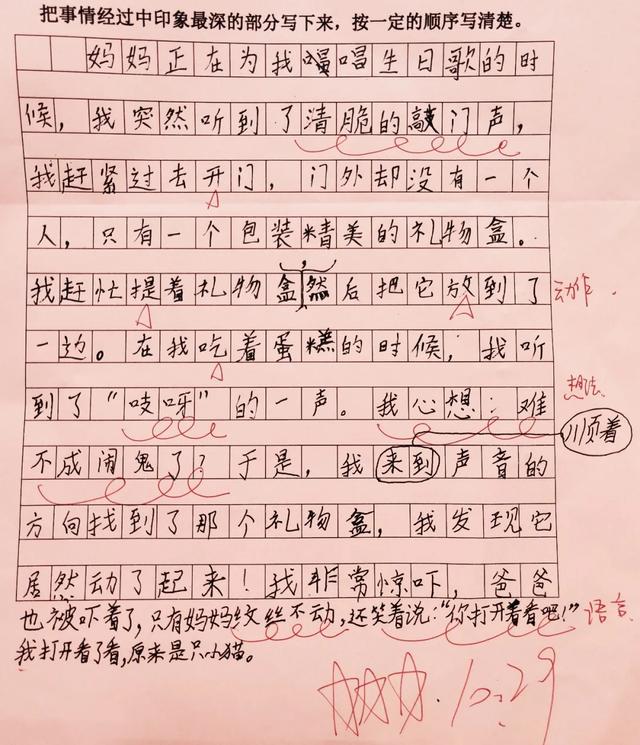 把事情经过中印象最深的部分写下来，按一定的顺序写清楚。
妈妈正在为我唱唱生日歌的时
候，我突然听到了清脆的敲门声，
我赶紧过去开门，门外却没有一个
人，只有一个包装精美的礼物盒。
我赶忙提着礼物盒，然后把它放到了 动作.
一边。在我吃着蛋糕的时候，我听
到了“吱呀”的一声。我心想：难 想法
不成闹鬼了？于是，我来到声音的 顺着
方向找到了那个礼物盒，我发现它
居然动了起来！我非常惊吓，爸爸
也被吓着了，只有妈妈纹丝不动，还笑着说：“你打开看看吧！” 语言
我打开看了看，原来是只小猫。
10.29